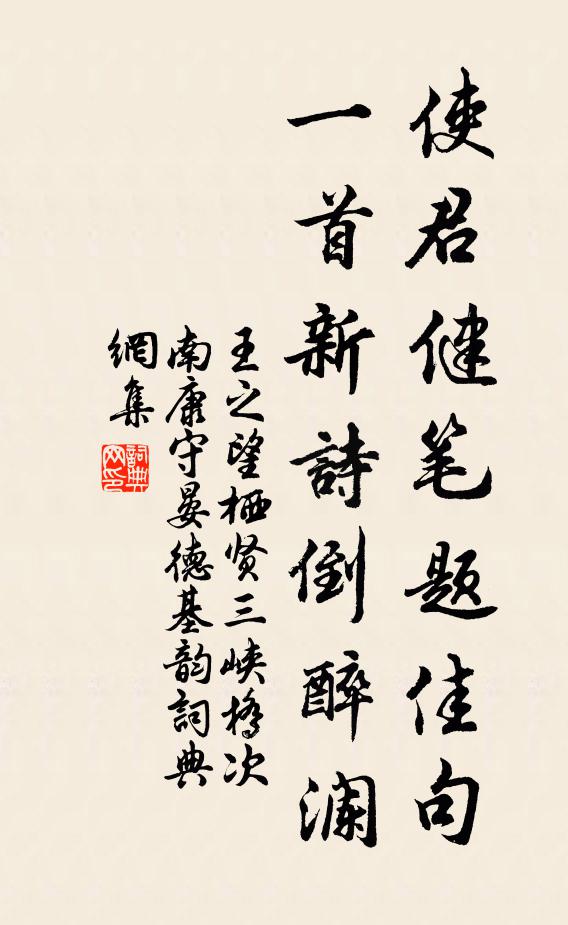 使君健笔题佳句
一首新詩倒醉瀾
王之望栖贤三峡橋次
南康守晏德基韵詞典
網集
詞典
网印